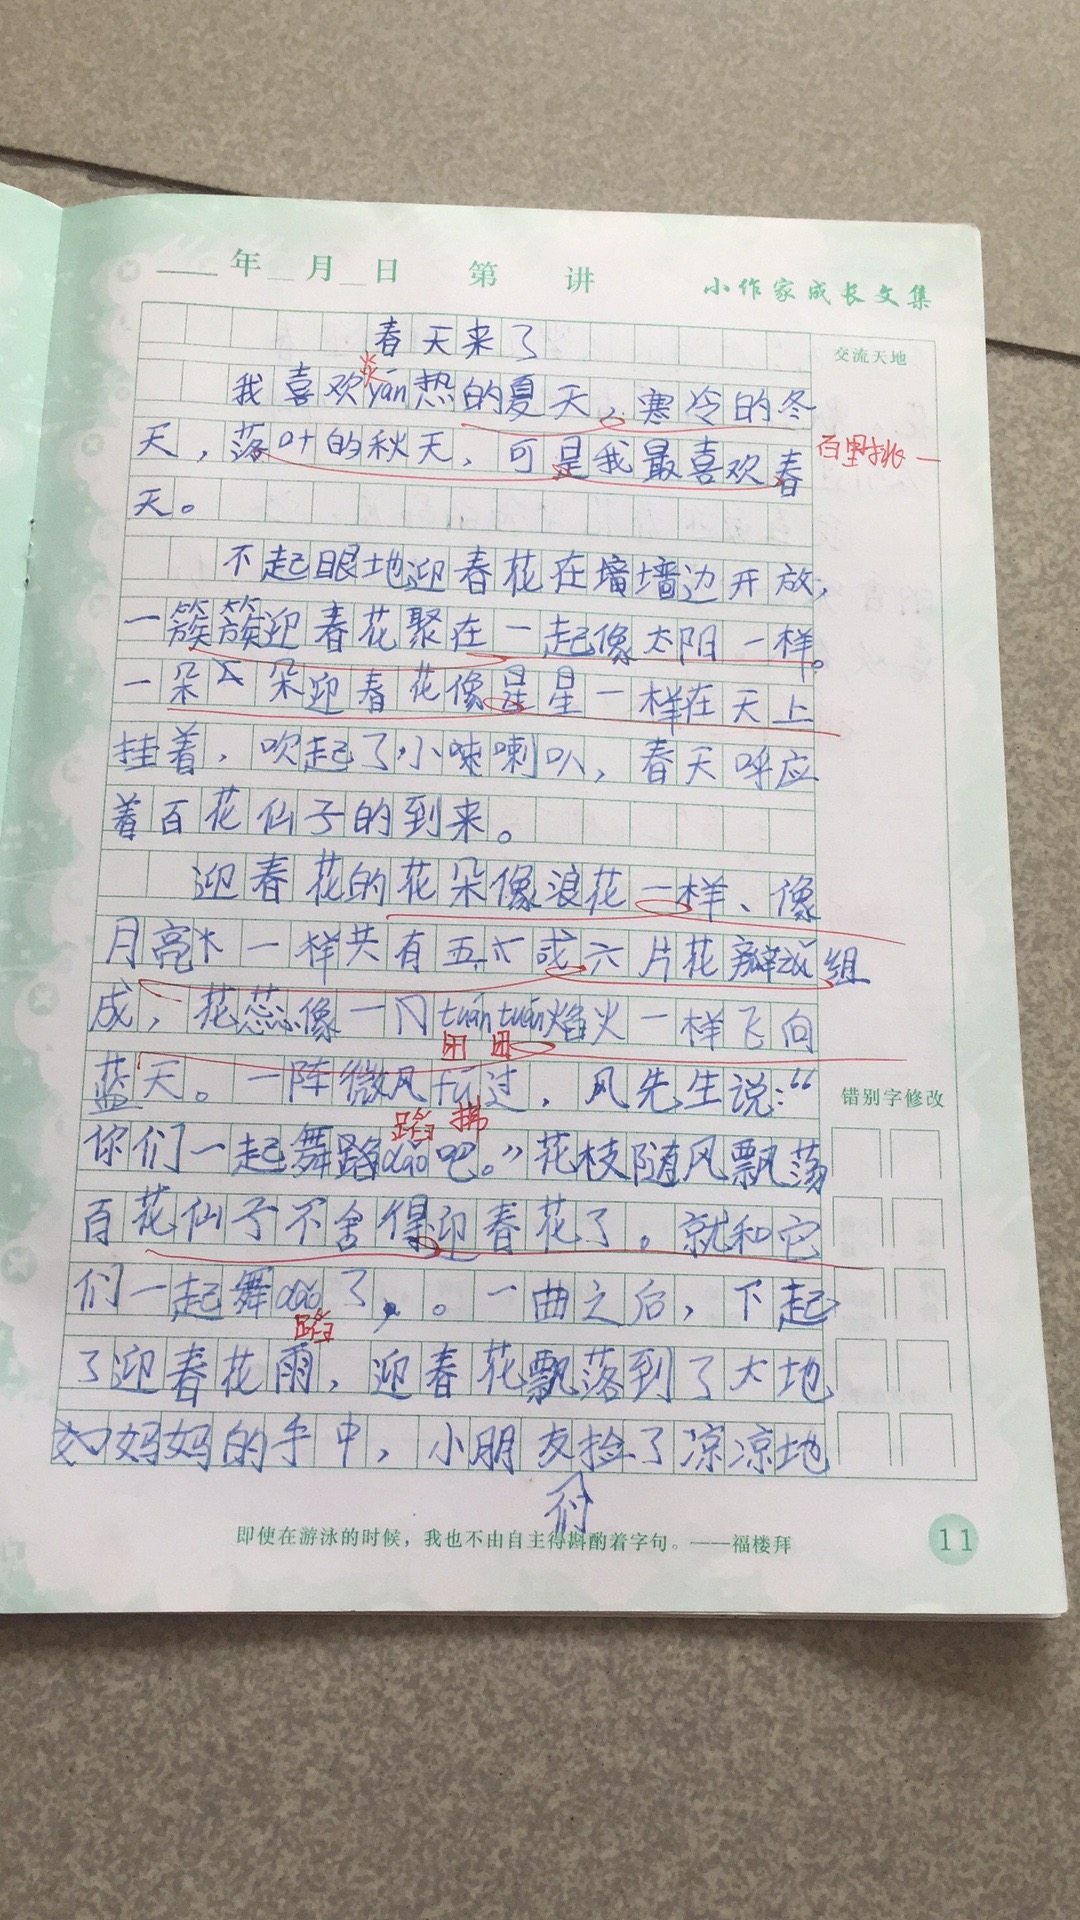 年 月 日 第 讲 小作家成长文集
春天来了
交流天地
炎
我喜欢yán热的夏天，寒冷的冬
天，落叶的秋天，可是我最喜欢春
百里挑一
天。
不起眼地迎春花在墙墙边开放，
一簇簇迎春花聚在一起像太阳一样。
一朵朵迎春花像星星一样在天上
挂着，吹起了小喇叭，春天呼应
着百花仙子的到来。
迎春花的花朵像浪花一样、像
月亮一样共有五六或六片花瓣组
成，花蕊像一门tuántuán焰火一样飞向
团团
蓝天。一阵微风fú过，风先生说：“
错别字修改
蹈 拂
你们一起舞蹈dǎo吧。”花枝随风飘荡
百花仙子不舍得迎春花了。就和它
们一起舞dǎo了。一曲之后，下起
蹈
了迎春花雨，迎春花飘落到了大地
妈妈的手中，小朋友捡了凉凉地
们
即使在游泳的时候，我也不由自主得斟酌着字句。——福楼拜
11